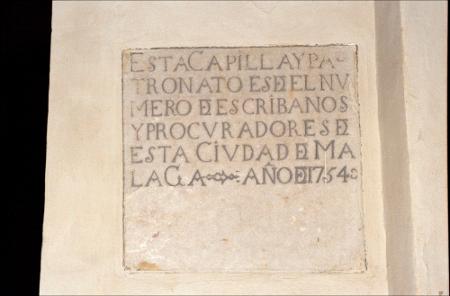 ESTA CAPILLA Y PA-
TRONATO ES DE EL NU
MERO DE ESCRIBANOS
Y PROCVRADORES DE
ESTA CIVDAD DE MA
LAGA AÑO DE 1754